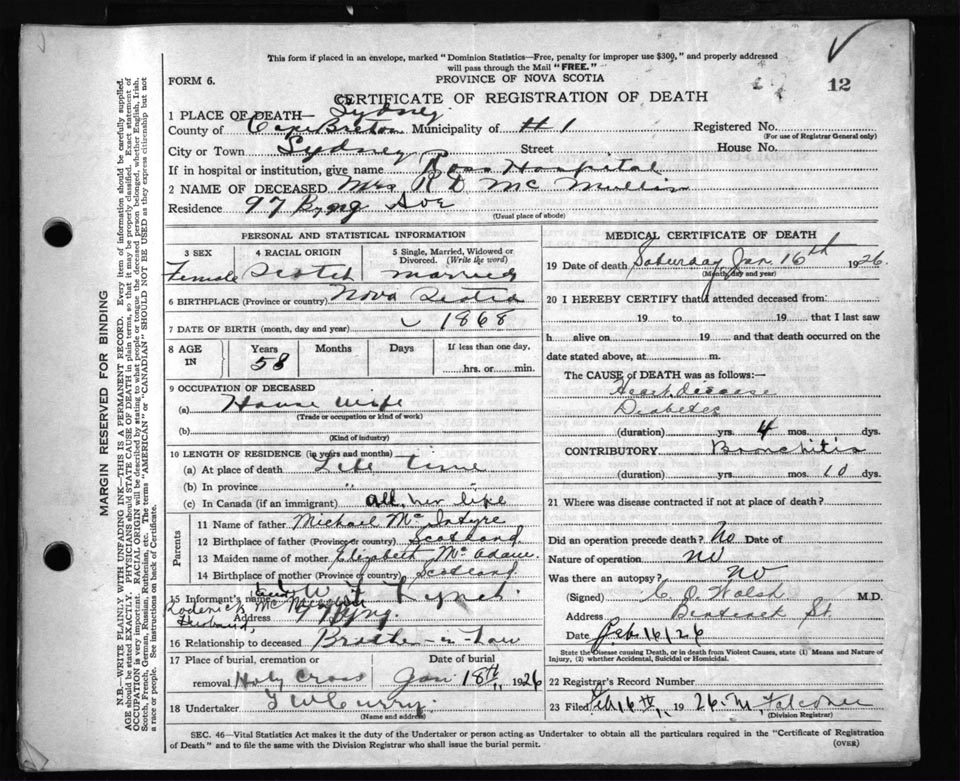 This form if placed in an envelope, marked "Dominion Statistics—Free, penalty for improper use $300," and properly addressed
will pass through the Mail "FREE."
FORM 6.
PROVINCE OF NOVA SCOTIA
12
CERTIFICATE OF REGISTRATION OF DEATH
1 PLACE OF DEATH— Sydney
County of Cape Breton Municipality of #1 Registered No.
(For use of Registrar General only)
City or Town Sydney Street House No.
If in hospital or institution, give name Ross Hospital
2 NAME OF DECEASED Mrs R D McMullin
Residence 97 Byng Ave
(Usual place of abode)
MARGIN RESERVED FOR BINDING
N.B.—WRITE PLAINLY WITH UNFADING INK—THIS IS A PERMANENT RECORD. Every item of information should be carefully supplied.
AGE should be stated EXACTLY. PHYSICIANS should STATE CAUSE OF DEATH in plain terms, so that it may be properly classified. Exact statement of
OCCUPATION is very important. RACIAL ORIGIN will be described by stating to what people or tongue the deceased person belonged, whether English, Irish,
Scotch, French, German, Russian, Ruthenian, etc. The terms "AMERICAN" or "CANADIAN" SHOULD NOT BE USED as they express citizenship but not
a race or people. See instructions on back of Certificate.
PERSONAL AND STATISTICAL INFORMATION
3 SEX
Female
4 RACIAL ORIGIN
Scotch
5 Single, Married, Widowed or
Divorced. (Write the word)
married
6 BIRTHPLACE (Province or country) Nova Scotia
7 DATE OF BIRTH (month, day and year) 1868
8 AGE
IN
Years
58
Months
Days
If less than one day,
hrs. or min.
9 OCCUPATION OF DECEASED
(a) House wife
(Trade or occupation or kind of work)
(b)
(Kind of industry)
10 LENGTH OF RESIDENCE (in years and months)
(a) At place of death Life time
(b) In province "
(c) In Canada (if an immigrant) all her life
Parents
11 Name of father Michael McIntyre
12 Birthplace of father (Province or country) Scotland
13 Maiden name of mother Elizabeth McAdam
14 Birthplace of mother (Province or country) Scotland
15 Informant's name W J Lynch
Roderick McMullin
Husband
Address Byng
16 Relationship to deceased Brother-in-Law
17 Place of burial, cremation or
removal Holy Cross
Date of burial
Jan 18th, 1926
18 Undertaker Curry
(Name and address)
MEDICAL CERTIFICATE OF DEATH
19 Date of death Saturday Jan 16th 1926
(Month, day and year)
20 I HEREBY CERTIFY that I attended deceased from
19 to 19 that I last saw
h alive on 19 and that death occurred on the
date stated above, at m.
The CAUSE OF DEATH was as follows:—
Heart Disease
Diabetes
(duration) yrs. 4 mos. dys.
CONTRIBUTORY Bronchitis
(duration) yrs. mos. 10 dys.
21 Where was disease contracted if not at place of death?
Did an operation precede death? No Date of
Nature of operation no
Was there an autopsy? no
(Signed) Walsh M.D.
Address St.
Date Feb 16/26
State the Disease causing Death, or in death from Violent Causes, state (1) Means and Nature of
Injury, (2) whether Accidental, Suicidal or Homicidal.
22 Registrar's Record Number
23 Filed Feb 16th, 1926. M. Falconer
(Division Registrar)
SEC. 46—Vital Statistics Act makes it the duty of the Undertaker or person acting as Undertaker to obtain all the particulars required in the "Certificate of Registration
of Death" and to file the same with the Division Registrar who shall issue the burial permit.
(OVER)